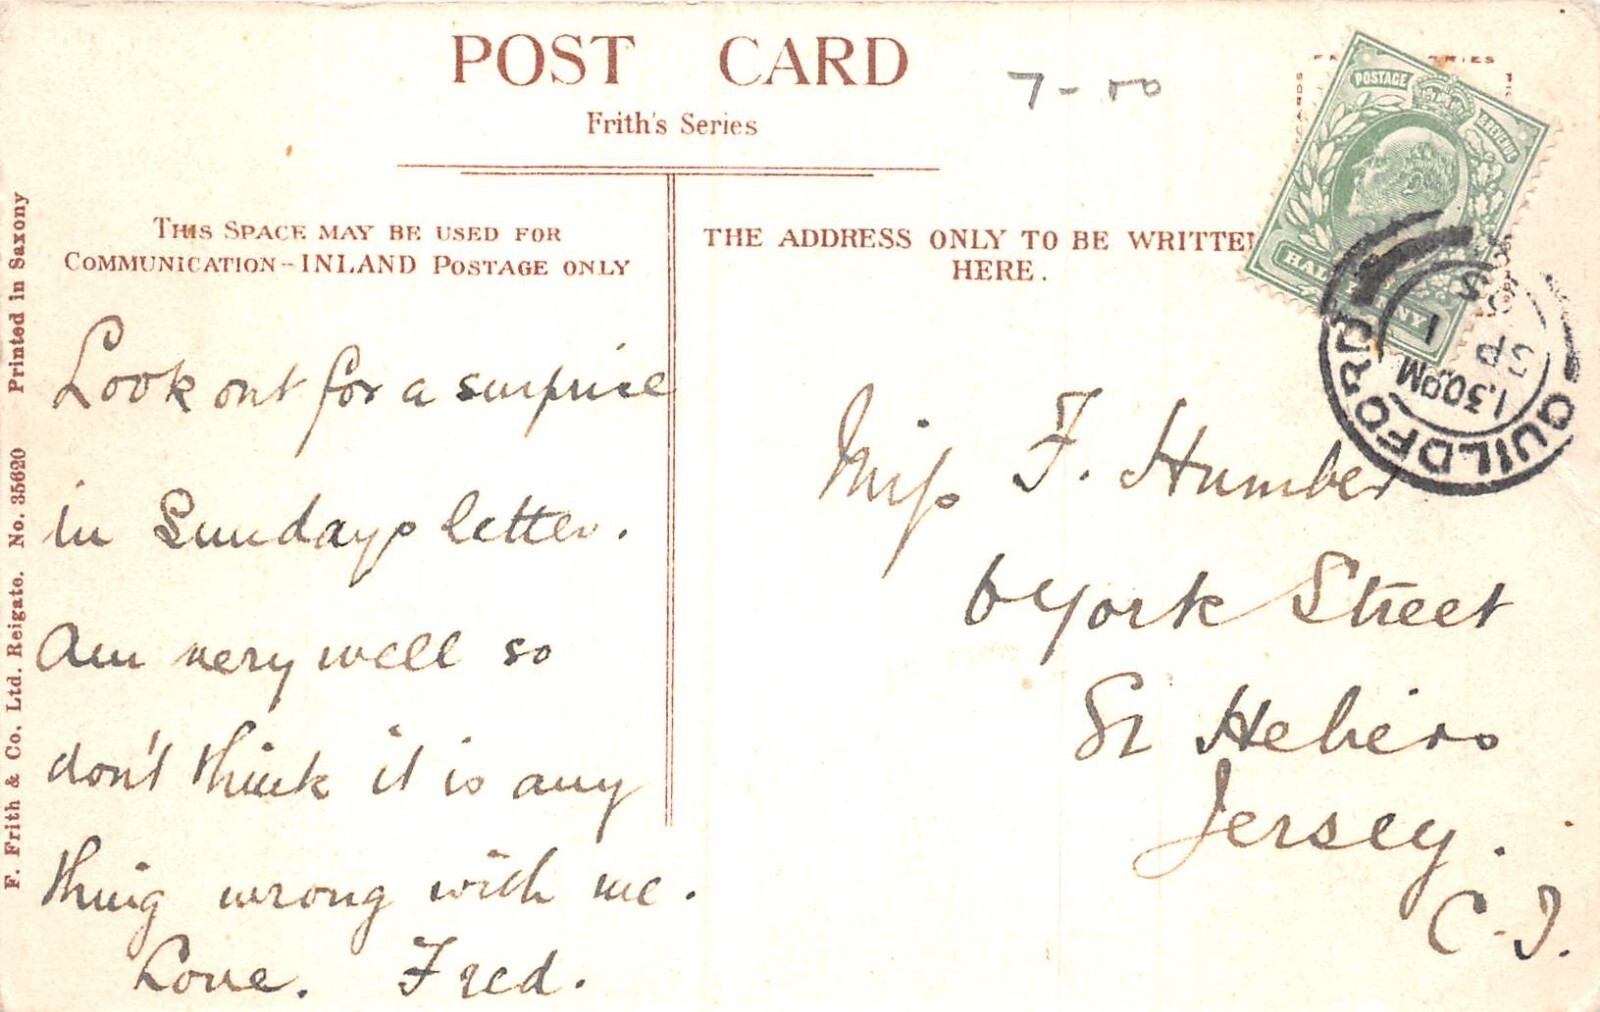 POST CARD
Frith's Series
7-00
THIS SPACE MAY BE USED FOR
COMMUNICATION-INLAND POSTAGE ONLY
THE ADDRESS ONLY TO BE WRITTEN
HERE.
Look out for a surprise
in Sundays letter.
Am very well so
don't think it is any
thing wrong with me.
Love. Fred.
Miss F. Humber
6 York Street
St Heliers
Jersey.
C.I.
POSTAGE
& REVENUE
GUILDFORD
1.30PM
SP
1
F. Frith & Co. Ltd. Reigate. No. 35620 Printed in Saxony